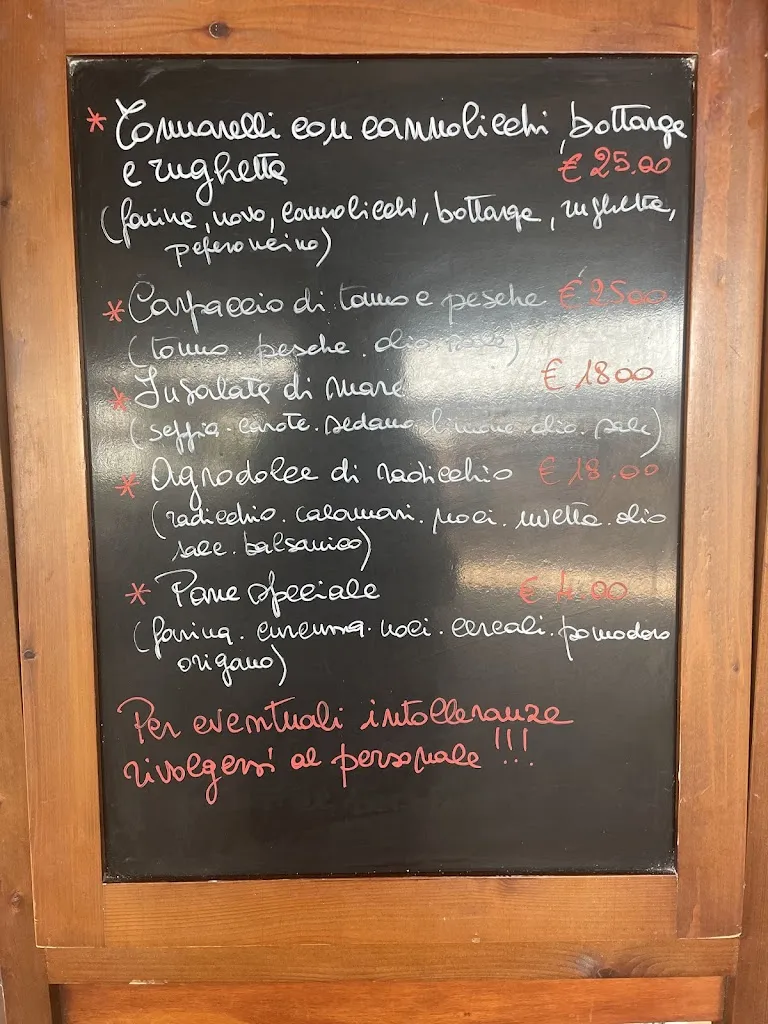 * Tonnarelli con cannolicchi, bottarga
e rughetta € 25.00
(farina, uovo, cannolicchi, bottarga, rughetta,
peperoncino)
* Carpaccio di tonno e pesche € 25 00
(tonno. pesche. olio. sale)
* Insalata di mare € 18 00
(seppia. carote. sedano. limone. olio. sale)
* Agrodolce di radicchio € 18.00
(radicchio. calamari. noci. uvetta. olio
sale. balsamico)
* Pane speciale € 4.00
(farina. curcuma. noci. cereali. pomodoro
origano)
Per eventuali intolleranze
rivolgersi al personale !!!